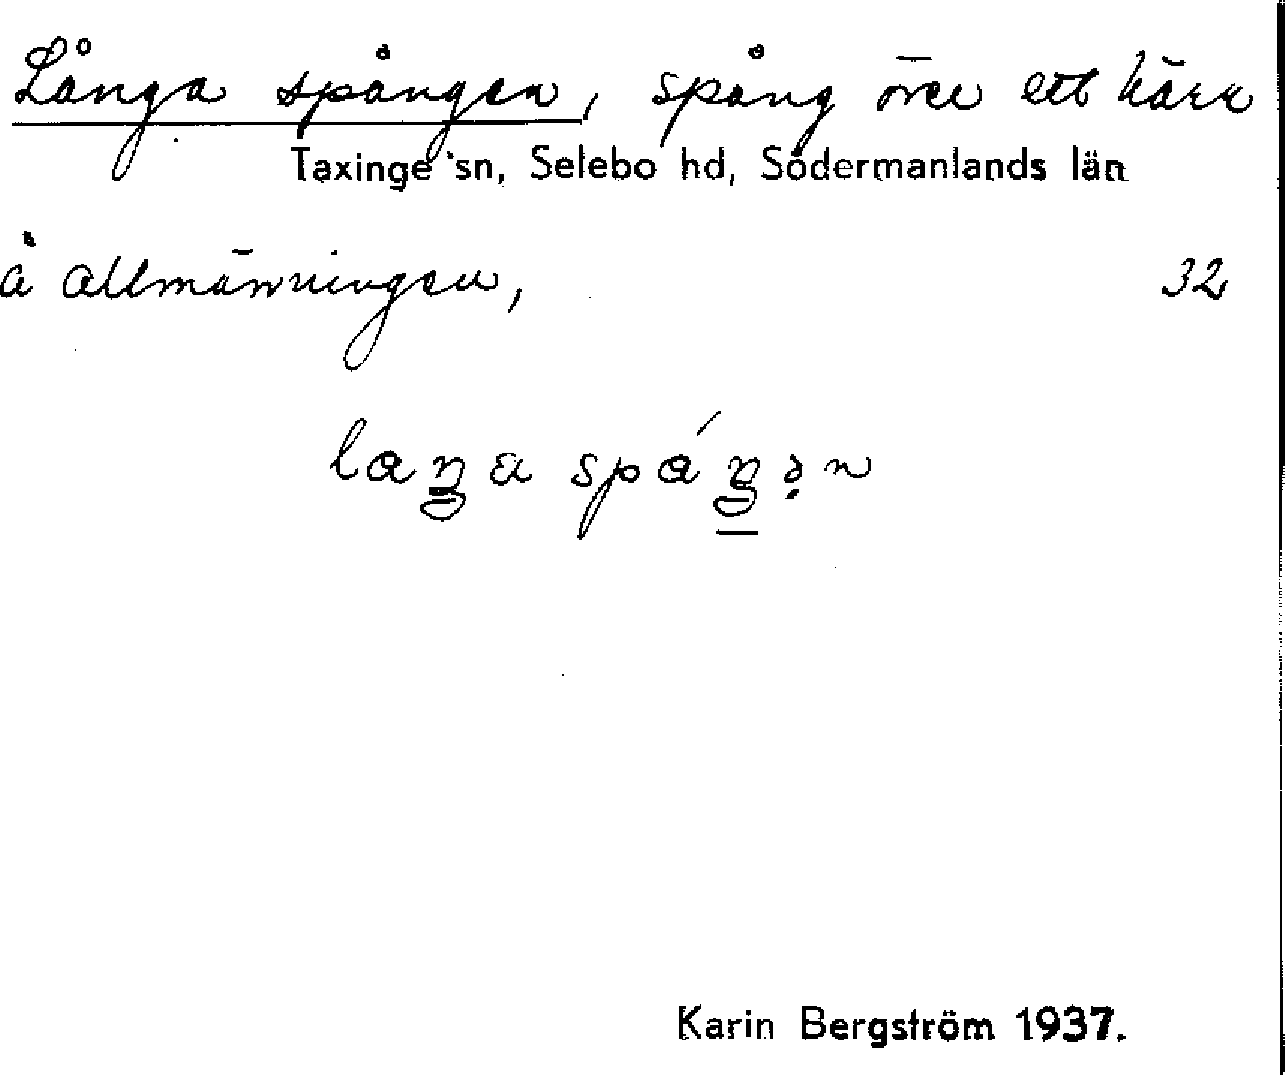 Långa spången, spång över ett kärr
Taxinge sn, Selebo hd, Södermanlands län
å allmänningen,
32
Karin Bergström 1937.